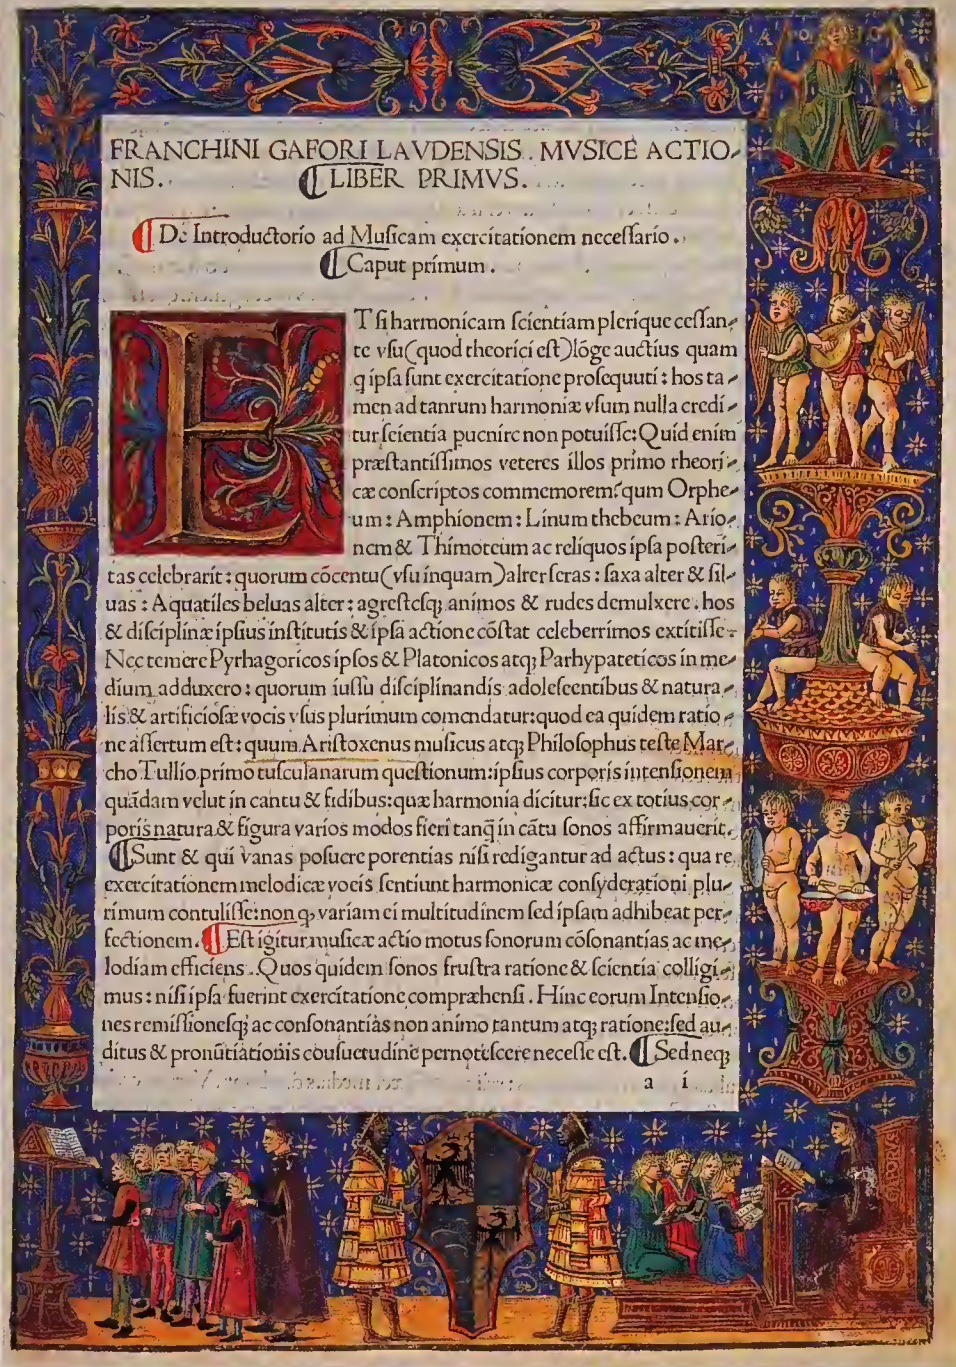 FRANCHINI GAFORI LAVDENSIS. MVSICE ACTIO-
NIS. ¶LIBER PRIMVS.
¶De Introductorio ad Musicam exercitationem necessario.
¶Caput primum.
ET si harmonicam scientiam plerique cessan-
te vsu (quod theorici est) lõge auctius quam
q ipsa sunt exercitatione prosequuti: hos ta-
men ad tantum harmoniæ vsum nulla credi-
tur scientia puenire non potuisse: Quid enim
præstantissimos veteres illos primo rheori-
cæ conscriptos commemorem? qum Orphe-
um: Amphionem: Linum thebeum: Ario-
nem & Thimoteum ac reliquos ipsa posteri-
tas celebrarit: quorum cõcentu (vsu inquam) alter feras: saxa alter & sil-
uas: Aquatiles beluas alter: agrestesqꝫ animos & rudes demulxere. hos
& disciplinæ ipsius institutis & ipsa actione cõstat celeberrimos extitisse.
Nec temere Pythagoricos ipsos & Platonicos atqꝫ Parhypateticos in me-
dium adduxero: quorum iussu disciplinandis adolescentibus & natura-
lis & artificiosæ vocis vsus plurimum comendatur: quod ea quidem ratio-
ne assertum est: quum Aristoxenus musicus atqꝫ Philosophus teste Mar-
cho Tullio primo tusculanarum questionum: ipsius corporis intensionem
quãdam velut in cantu & fidibus: quæ harmonia dicitur: sic ex totius cor-
poris natura & figura varios modos fieri tanq̃ in cãtu sonos affirmauerit.
¶Sunt & qui vanas posuere potentias nisi redigantur ad actus: qua re
exercitationem melodicæ vocis sentiunt harmonicæ consyderationi plu-
rimum contulisse: non qꝫ variam ei multitudinem sed ipsam adhibeat per-
fectionem. ¶Est igitur musicæ actio motus sonorum cõsonantias ac me-
lodiam efficiens. Quos quidem sonos frustra ratione & scientia colligi-
mus: nisi ipsa fuerint exercitatione compræhensi. Hinc eorum Intensio-
nes remissionesqꝫ ac consonantias non animo tantum atqꝫ ratione: sed au-
ditus & pronũtiationis cousuetudine pernotescere necesse est. ¶Sed neqꝫ
a i